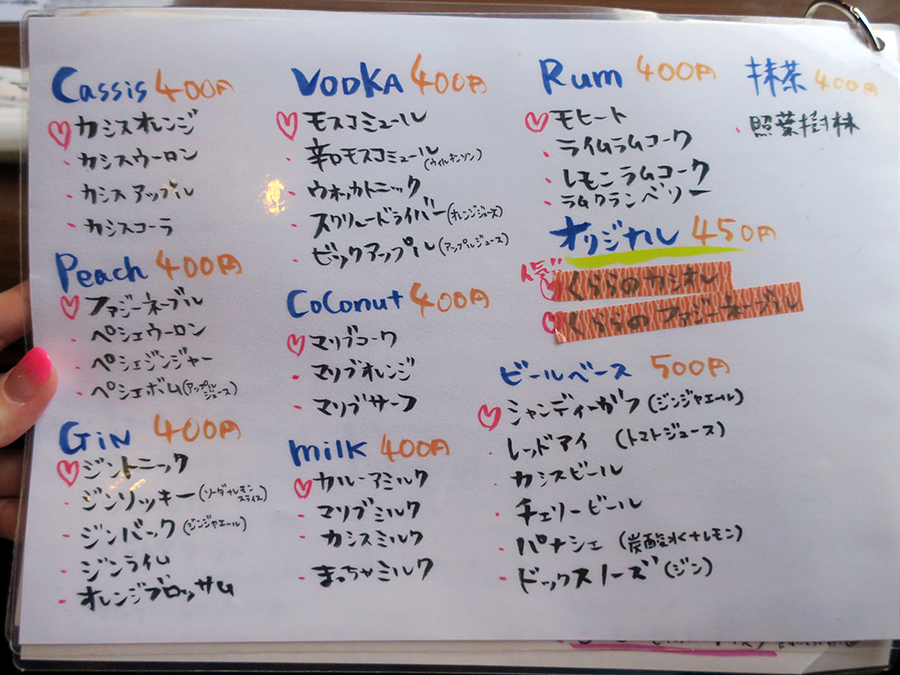 Cassis 400円
カシスオレンジ
・カシスウーロン
・カシスアップル
・カシスコーラ
Peach 400円
ファジーネーブル
・ペシェウーロン
・ペシェジンジャー
・ペシェボム(アップルジュース)
GiN 400円
ジントニック
・ジンリッキー(ソーダ+レモンスライス)
・ジンバック(ジンジャエール)
・ジンライム
・オレンジブロッサム
VODKA 400円
モスコミュール
・辛口モスコミュール(ウィルキンソン)
・ウオッカトニック
・スクリュードライバー(オレンジジュース)
・ビックアップル(アップルジュース)
CoConut 400円
マリブコーク
・マリブオレンジ
・マリブサーフ
milk 400円
カルーアミルク
・マリブミルク
・カシスミルク
・まっちゃミルク
Rum 400円
モヒート
・ライムラムコーク
・レモンラムコーク
・ラムクランベリー
オリジナル 450円
人気
くららのカシオレ
くららのファジーネーブル
ビールベース 500円
シャンディーガフ(ジンジャエール)
・レッドアイ (トマトジュース)
・カシスビール
・チェリービール
・パナシェ (炭酸水+レモン)
・ドックスノーズ(ジン)
抹茶 400円
・照葉樹林